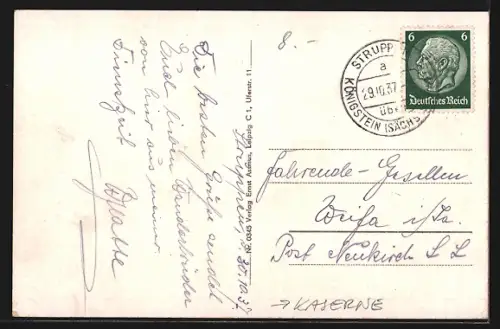 8.-
Struppen, 30.10.37
Die besten Grüße sendet
Euch lieben Wanderbrüder
von hier aus meiner
Dienstzeit
Nr. 0345 Verlag Ernst Aumann, Leipzig C 1, Uferstr. 11
STRUPP
a
29.10.37
üb.
KÖNIGSTEIN (SÄCHS
6 6
Deutsches Reich
Fahrende-Gesellen
Weifa i/Sa.
Post Neukirch L L
→ KASERNE